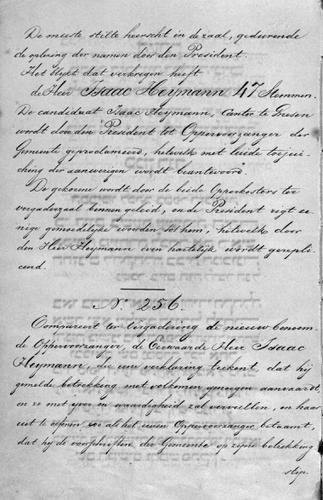 De meeste stilte heerscht in de zaal, gedurende
de oplezing der namen door den President.
Het blijkt dat verkregen heeft
de Heer Isaac Heymann 47 Stemmen.
De candidaat Isaac Heymann, Cantor te Gnesen
wordt door den President tot Oppervoorzanger der
Gemeente geproclameerd, hetwelk met luide toejui-
ching der aanwezigen wordt beantwoord.
De gekozene wordt door de beide Opperkosters ter
vergaderzaal binnen geleid, en de President rigt ee-
nige gemoedelijke woorden tot hem, hetwelk door
den Heer Heymann even hartelijk wordt gerepli-
ceerd.
No. 256.
Compareert ter vergadering de nieuw benoem-
de Oppervoorzanger, de Eerwaarde Heer Isaac
Heymann, die eene verklaring teekent, dat hij
gemelde betrekking met volkomen genoegen aanvaardt,
en ze met ijver en waardigheid zal vervullen, en haar
uit te oefenen zoo als het eenen Oppervoorzanger betaamt,
dat hij de voorschriften der Gemeente op zijne betrekking
stip-